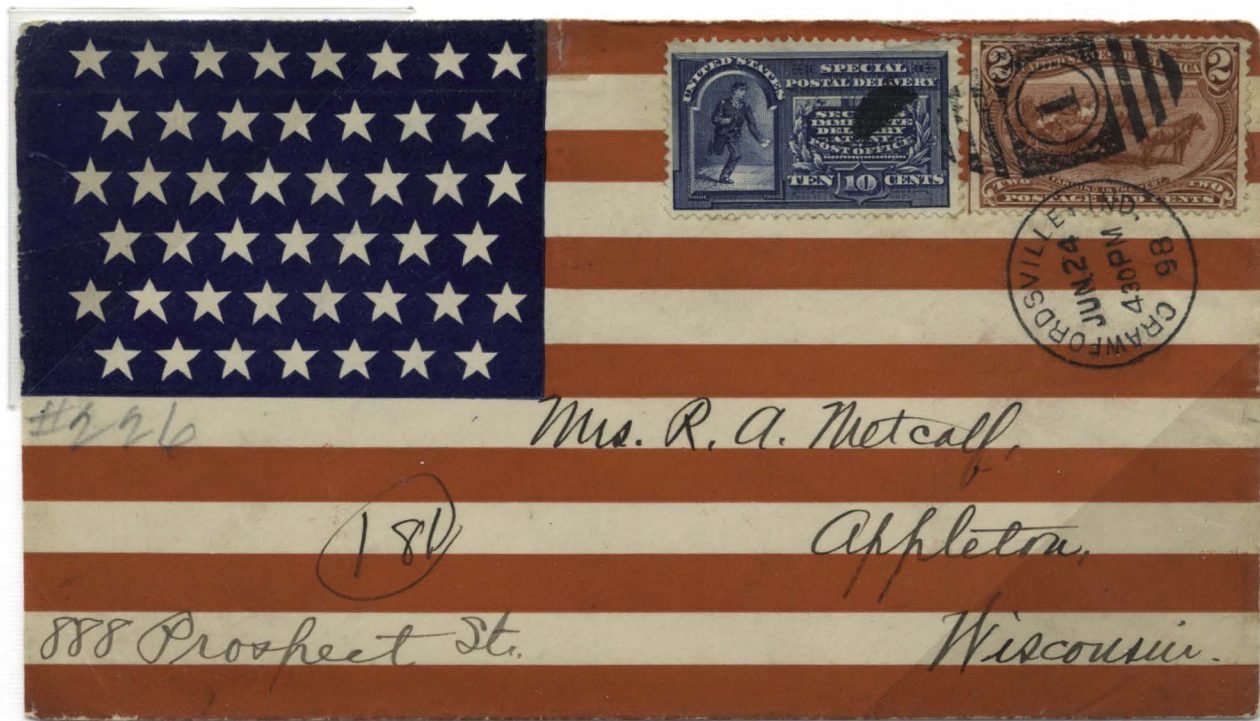 UNITED STATES
SPECIAL
POSTAL DELIVERY
SECURES
IMMEDIATE
DELIVERY
AT ANY
POST OFFICE
TEN 10 CENTS
2 2
1
TWO TWO
POSTAGE TWO CENTS
CRAWFORDSVILLE, IND.
JUN 24
430PM
98
#226
Mrs. R. A. Metcalf,
Appleton,
888 Prospect St.
Wisconsin.